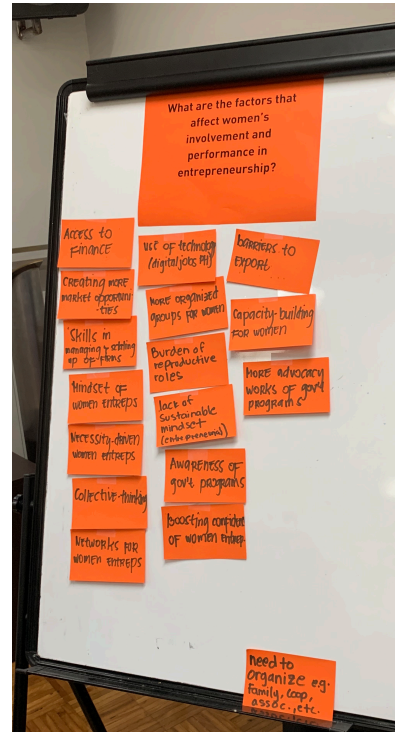 What are the factors that
affect women's
involvement and
performance in
entrepreneurship?
Access to
Finance
Creating more
market opportuni
-ties
Skills in
managing & setting
up of firms
Mindset of
women entreps
Necessity-driven
women entreps
Collective-thinking
Networks for
women entreps
Use of technology
(digitaljobs PH)
More organized
groups for women
Burden of
reproductive
roles
lack of
sustainable
mindset
(entrepreneurial)
Awareness of
gov't programs
Boosting confidence
of women entrep.
barriers to
export
Capacity-building
for women
More advocacy
works of gov't
programs
need to
organize e.g.
family, coop,
assoc., etc.